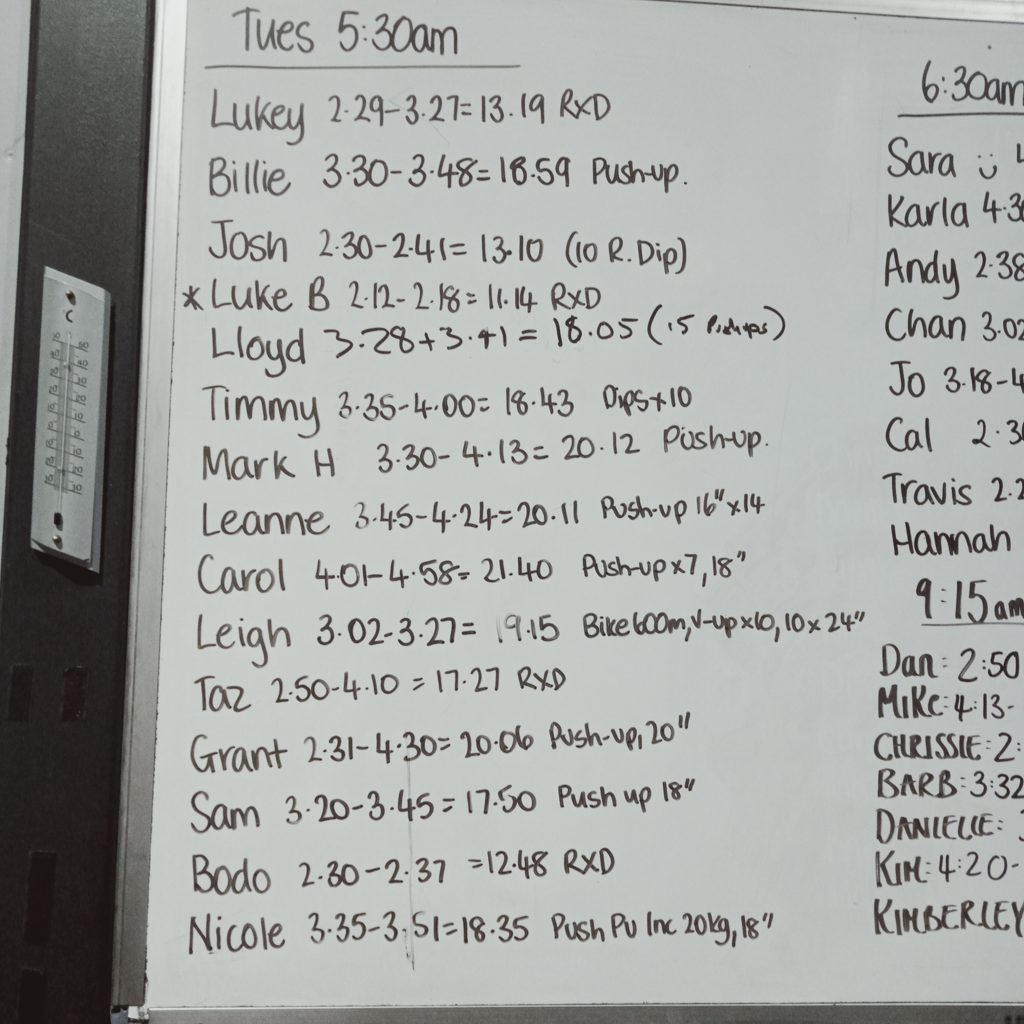 Tues 5:30am
Lukey 2.29-3.27=13.19 RXD
Billie 3.30-3.48=18.59 Push-up.
Josh 2.30-2.41=13.10 (10 R.Dip)
* Luke B 2.12-2.18=11.14 RXD
Lloyd 3.28+3.41=18.05 (15
Timmy 3.35-4.00=18.43 Dips+10
Mark H 3.30-4.13=20.12 Push-up.
Leanne 3.45-4.24=20.11 Push-up 16"x14
Carol 4.01-4.58=21.40 Push-up x7, 18"
Leigh 3.02-3.27=19.15 Bike 600m, V-up x10, 10x24"
Taz 2.50-4.10=17.27 RXD
Grant 2.31-4.30=20.06 Push-up, 20"
Sam 3.20-3.45=17.50 Push up 18"
Bodo 2.30-2.37 =12.48 RXD
Nicole 3.35-3.51=18.35 Push Pu Inc 20kg, 18"
6:30am
Sara
Karla 4.3
Andy 2.38
Chan 3.02
Jo 3.18-4
Cal 2.3
Travis 2.2
Hannah
9:15am
Dan: 2:50
MIKE: 4:13-
CHRISSIE: 2:
BARB: 3:32
DANIELLE:
KIM: 4:20-
KIMBERLEY